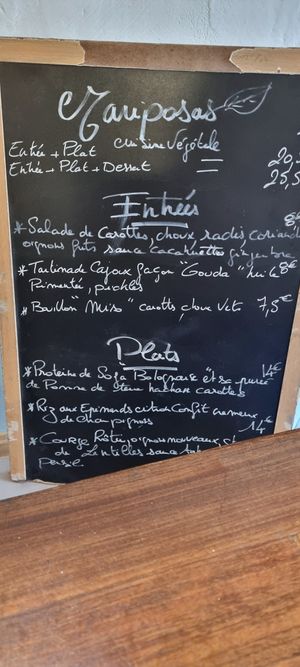 Mariposas
cuisine Végétale
Entrée + Plat = 20,
Entrée + Plat + Dessert = 25,5
Entrées
* Salade de carottes, choux, radis, coriand
oignons frits sauce cacahuettes gingembre
* Tartinade Cajoux façon "Gouda" huile 8€
Pimentée, pickles
* Bouillon "Miso" carotte choux Vert 7,5€
Plats
* Protéine de Soja Bolognaise et sa purée 14€
de Pomme de terre carottes
* Riz aux Epinards citron Confit crémeux
de champignons 14€
* Courge Rôtie, oignons nouveaux, et
de Lentilles sauce
persil